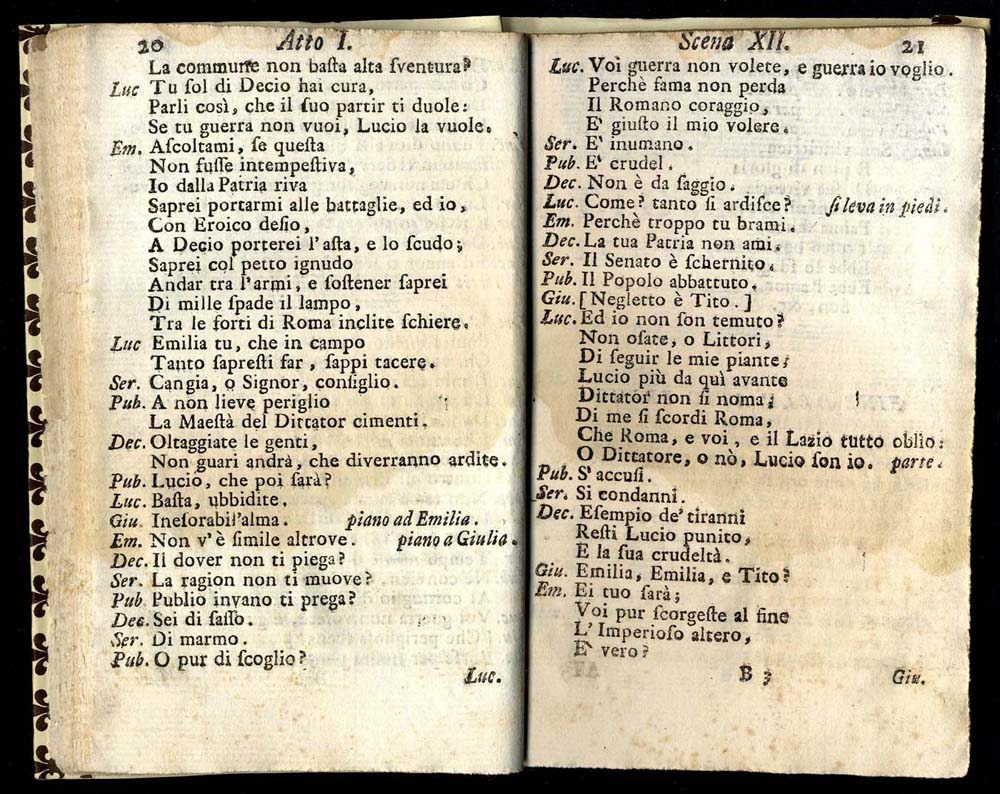 20 Atto I.
La commune non baſta alta ſventura?
Luc Tu ſol di Decio hai cura,
Parli così, che il ſuo partir ti duole:
Se tu guerra non vuoi, Lucio la vuole.
Em. Aſcoltami, ſe queſta
Non fuſſe intempeſtiva,
Io dalla Patria riva
Saprei portarmi alle battaglie, ed io,
Con Eroico deſio,
A Decio porterei l'aſta, e lo ſcudo;
Saprei col petto ignudo
Andar tra l'armi, e ſoſtener ſaprei
Di mille ſpade il lampo,
Tra le forti di Roma inclite ſchiere.
Luc Emilia tu, che in campo
Tanto ſapreſti far, ſappi tacere.
Ser. Cangia, o Signor, conſiglio.
Pub. A non lieve periglio
La Maeſtà del Dittator cimenti.
Dec. Oltaggiate le genti,
Non guari andrà, che diverranno ardite.
Pub. Lucio, che poi ſarà?
Luc. Baſta, ubbidite.
Giu. Ineſorabil'alma. piano ad Emilia.
Em. Non v'è ſimile altrove. piano a Giulia.
Dec. Il dover non ti piega?
Ser. La ragion non ti muove?
Pub. Publio invano ti prega?
Dec. Sei di ſaſſo.
Ser. Di marmo.
Pub. O pur di ſcoglio?
Luc.
Scena XII. 21
Luc. Voi guerra non volete, e guerra io voglio.
Perchè fama non perda
Il Romano coraggio,
E' giuſto il mio volere.
Ser. E' inumano.
Pub. E' crudel.
Dec. Non è da ſaggio.
Luc. Come? tanto ſi ardiſce? ſi leva in piedi.
Em. Perchè troppo tu brami.
Dec. La tua Patria non ami.
Ser. Il Senato è ſchernito.
Pub. Il Popolo abbattuto.
Giu. [Negletto è Tito.]
Luc. Ed io non ſon temuto?
Non oſate, o Littori,
Di ſeguir le mie piante;
Lucio più da quì avante
Dittator non ſi noma;
Di me ſi ſcordi Roma,
Che Roma, e voi, e il Lazio tutto oblio:
O Dittatore, o nò, Lucio ſon io. parte.
Pub. S' accuſi.
Ser. Si condanni.
Dec. Eſempio de' tiranni
Reſti Lucio punito,
E la ſua crudeltà.
Giu. Emilia, Emilia, e Tito?
Em. Ei tuo ſarà;
Voi pur ſcorgeſte al fine
L' Imperioſo altero,
E' vero?
B 3 Giu.